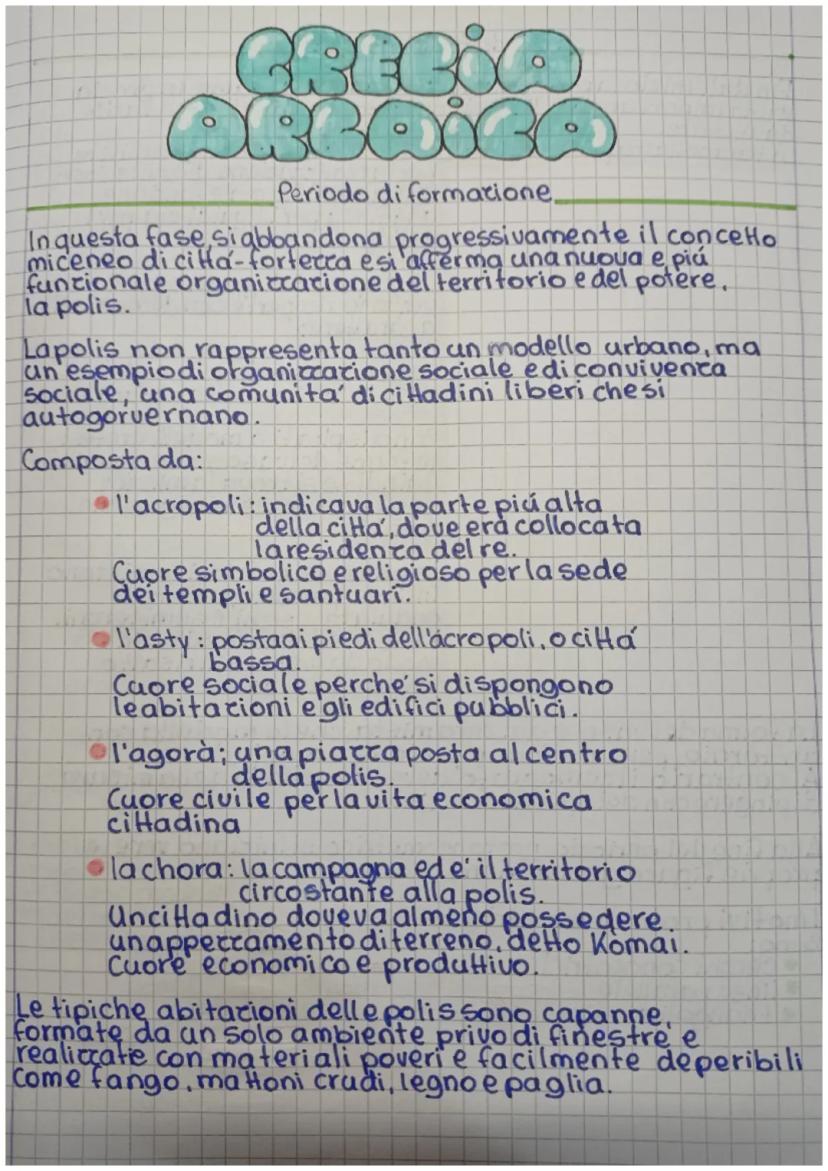 GRECIA
ARCAICA
Periodo di formazione
In questa fase, si abbandona progressivamente il concetto
miceneo di cittá-fortezza e si afferma una nuova e piú
funzionale organizzazione del territorio e del potere,
la polis.
La polis non rappresenta tanto un modello urbano, ma
un'esempio di organizzazione sociale e di convivenza
sociale, una comunita' di cittadini liberi che si
autogorvernano.
Composta da:
l'acropoli: indicava la parte piú alta
della citta', dove era collocata
la residenza del re.
Cuore simbolico e religioso per la sede
dei templi e santuari.
l'asty: posta ai piedi dell'acropoli, o cittá
bassa.
Cuore sociale perche' si dispongono
le abitazioni e gli edifici pubblici.
l'agorà; una piazza posta al centro
della polis.
Cuore civile per la vita economica
cittadina
la chora: la campagna ed e' il territorio
circostante alla polis.
Un cittadino doveva almeno possedere
un appezzamento di terreno, detto Komai.
Cuore economico e produttivo.
Le tipiche abitazioni delle polis sono capanne,
formate da un solo ambiente privo di finestre e
realizzate con materiali poveri e facilmente deperibili
come fango, mattoni crudi, legno e paglia.